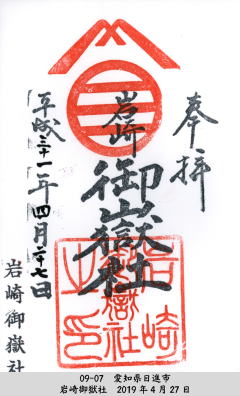 奉拝
岩崎
御嶽社
平成三十一年四月二十七日
岩崎御嶽社
岩崎御嶽社之印
09-07 愛知県日進市
岩崎御嶽社 2019年4月27日